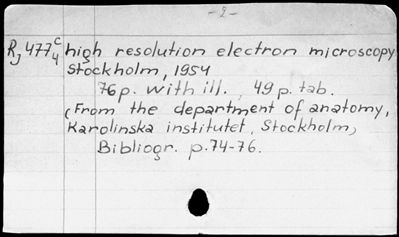 -2-
R, 477 c/4 high resolution electron microscopy
Stockholm, 1954
76 p. with ill., 49 p. tab.
(From the department of anatomy,
Karolinska institutet, Stockholm)
Bibliogr. p. 74-76.